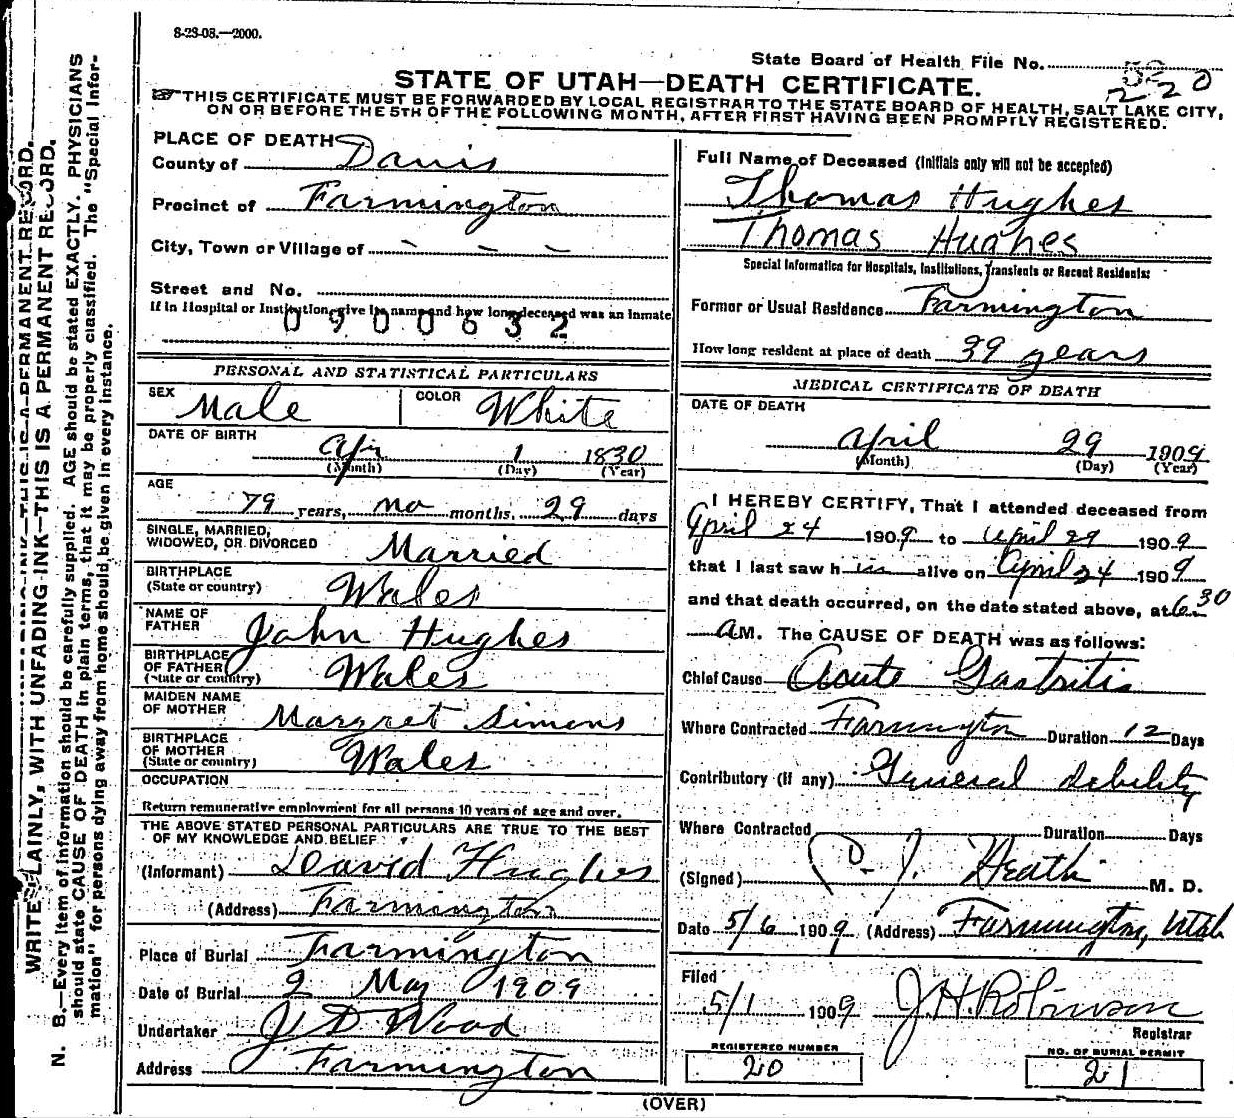 8-23-08.—2000.
State Board of Health File No. 220
STATE OF UTAH—DEATH CERTIFICATE.
THIS CERTIFICATE MUST BE FORWARDED BY LOCAL REGISTRAR TO THE STATE BOARD OF HEALTH, SALT LAKE CITY,
ON OR BEFORE THE 5TH OF THE FOLLOWING MONTH, AFTER FIRST HAVING BEEN PROMPTLY REGISTERED.
WRITE PLAINLY, WITH UNFADING INK—THIS IS A PERMANENT RECORD.
N. B.—Every item of information should be carefully supplied. AGE should be stated EXACTLY. PHYSICIANS
should state CAUSE OF DEATH in plain terms, that it may be properly classified. The "Special Infor-
mation" for persons dying away from home should be given in every instance.
PLACE OF DEATH
County of Davis
Precinct of Farmington
City, Town or Village of — — —
Street and No.
If in Hospital or Institution, give its name and how long deceased was an inmate
0900632
PERSONAL AND STATISTICAL PARTICULARS
SEX Male COLOR White
DATE OF BIRTH Apr 1 1830
(Month) (Day) (Year)
AGE
79 years, no months, 29 days
SINGLE, MARRIED,
WIDOWED, OR DIVORCED Married
BIRTHPLACE
(State or country) Wales
NAME OF
FATHER John Hughes
BIRTHPLACE
OF FATHER
(State or country) Wales
MAIDEN NAME
OF MOTHER Margret Simons
BIRTHPLACE
OF MOTHER
(State or country) Wales
OCCUPATION
Return remunerative employment for all persons 10 years of age and over.
THE ABOVE STATED PERSONAL PARTICULARS ARE TRUE TO THE BEST
OF MY KNOWLEDGE AND BELIEF
(Informant) David Hughes
(Address) Farmington
Place of Burial Farmington
Date of Burial 2 May 1909
Undertaker J D Wood
Address Farmington
Full Name of Deceased (Initials only will not be accepted)
Thomas Hughes
Thomas Hughes
Special Information for Hospitals, Institutions, Transients or Recent Residents:
Former or Usual Residence Farmington
How long resident at place of death 39 years
MEDICAL CERTIFICATE OF DEATH
DATE OF DEATH
April 29 1909
(Month) (Day) (Year)
I HEREBY CERTIFY, That I attended deceased from
April 24 1909 to April 29 1909
that I last saw him alive on April 24 1909
and that death occurred, on the date stated above, at 6:30
AM. The CAUSE OF DEATH was as follows:
Chief Cause Acute Gastritis
Where Contracted Farmington Duration 12 Days
Contributory (if any) General debility
Where Contracted Duration Days
(Signed) J. Heath M. D.
Date 5/6 1909 (Address) Farmington, Utah
Filed
5/1 1909 J. H. Robinson
Registrar
REGISTERED NUMBER
20
NO. OF BURIAL PERMIT
21
(OVER)